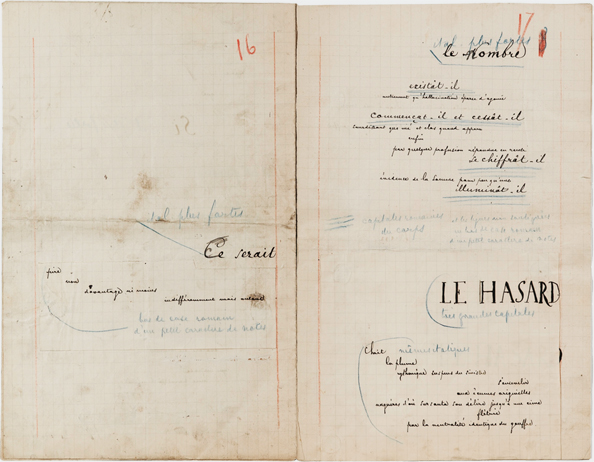 16
ital. plus fortes
Ce serait
pire
non
davantage ni moins
indifféremment mais autant
bas de casse romain
d'un petit caractère de notes
17
ital. plus fortes
le Nombre
existât-il
autrement qu'hallucination éparse d'agonie
commençât-il et cessât-il
sourdant que nié et clos quand apparu
enfin
par quelque profusion répandue en rareté
se chiffrât-il
évidence de la somme pour peu qu'une
illuminât-il
capitales romaines
du corps
d'un petit caractère de notes
LE HASARD
très grandes capitales
Choit
mêmes italiques
la plume
rythmique suspens du sinistre
s'ensevelir
aux écumes originelles
naguères d'où sursauta son délire jusqu'à une cime
flétrie
par la neutralité identique du gouffre